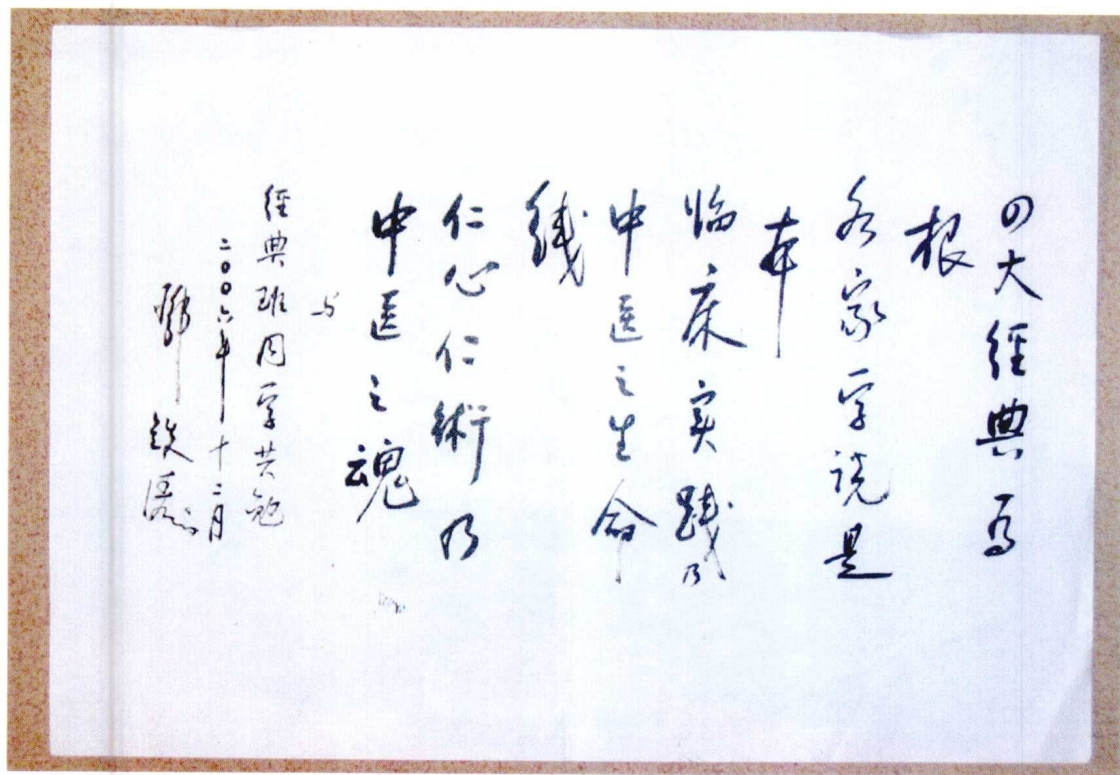 四大經典为
根
各家学说是
本
临床实践乃
中医之生命
线
仁心仁術乃
中医之魂
与
經典班同学共勉
二〇〇六年十二月
鄧鉄涛